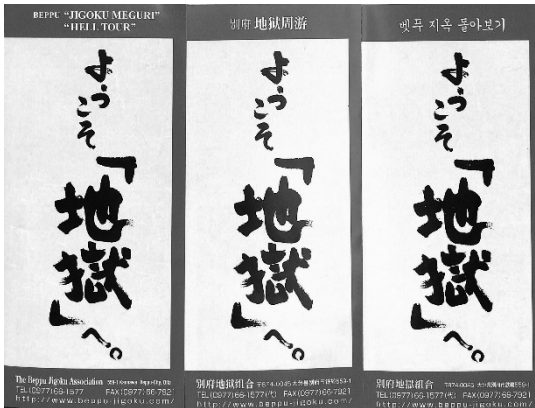 BEPPU "JIGOKU MEGURI"
"HELL TOUR"
ようこそ
「地獄」へ。
The Beppu Jigoku Association
TEL(0977)66-1577 FAX(0977)66-7921
http://www.beppu-jigoku.com/
別府 地獄周游
ようこそ
「地獄」へ。
別府地獄組合 〒874-0045 大分県別府市御幸559-1
TEL(0977)66-1577(代) FAX(0977)66-7921
http://www.beppu-jigoku.com/
벳푸 지옥 돌아보기
ようこそ
「地獄」へ。
別府地獄組合 〒874-0045
TEL(0977)66-1577(代) FAX(0977)66-7921
http://www.beppu-jigoku.com/